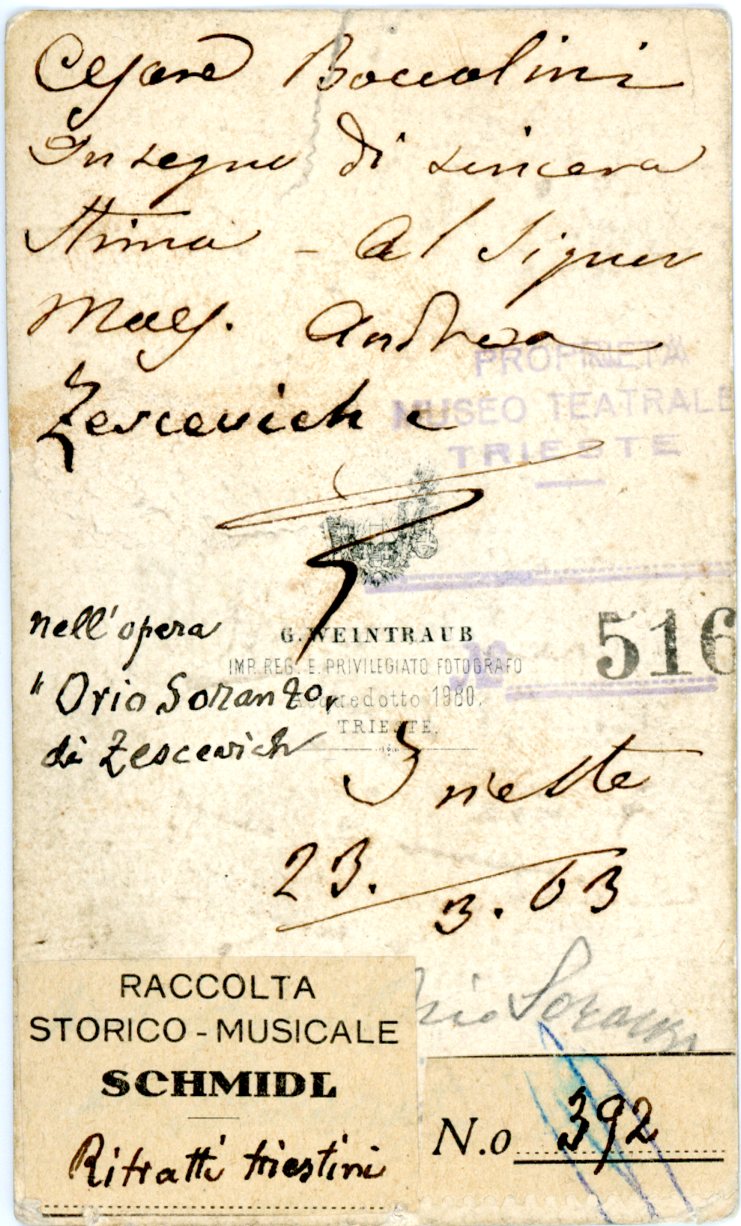 Cesare Boccolini
In segno di sincera
Stima - Al Signor
Maes. Andrea
Zescevich
PROPRIETÀ
MUSEO TEATRALE
TRIESTE
nell'opera
"Orio Soranzo"
di Zescevich
G. WEINTRAUB
IMP. REG. E. PRIVILEGIATO FOTOGRAFO
Acquedotto 1980.
TRIESTE.
No
516
Trieste
23.
3. 63
Orio Soranzo
RACCOLTA
STORICO-MUSICALE
SCHMIDL
Ritratti triestini
N.o 392